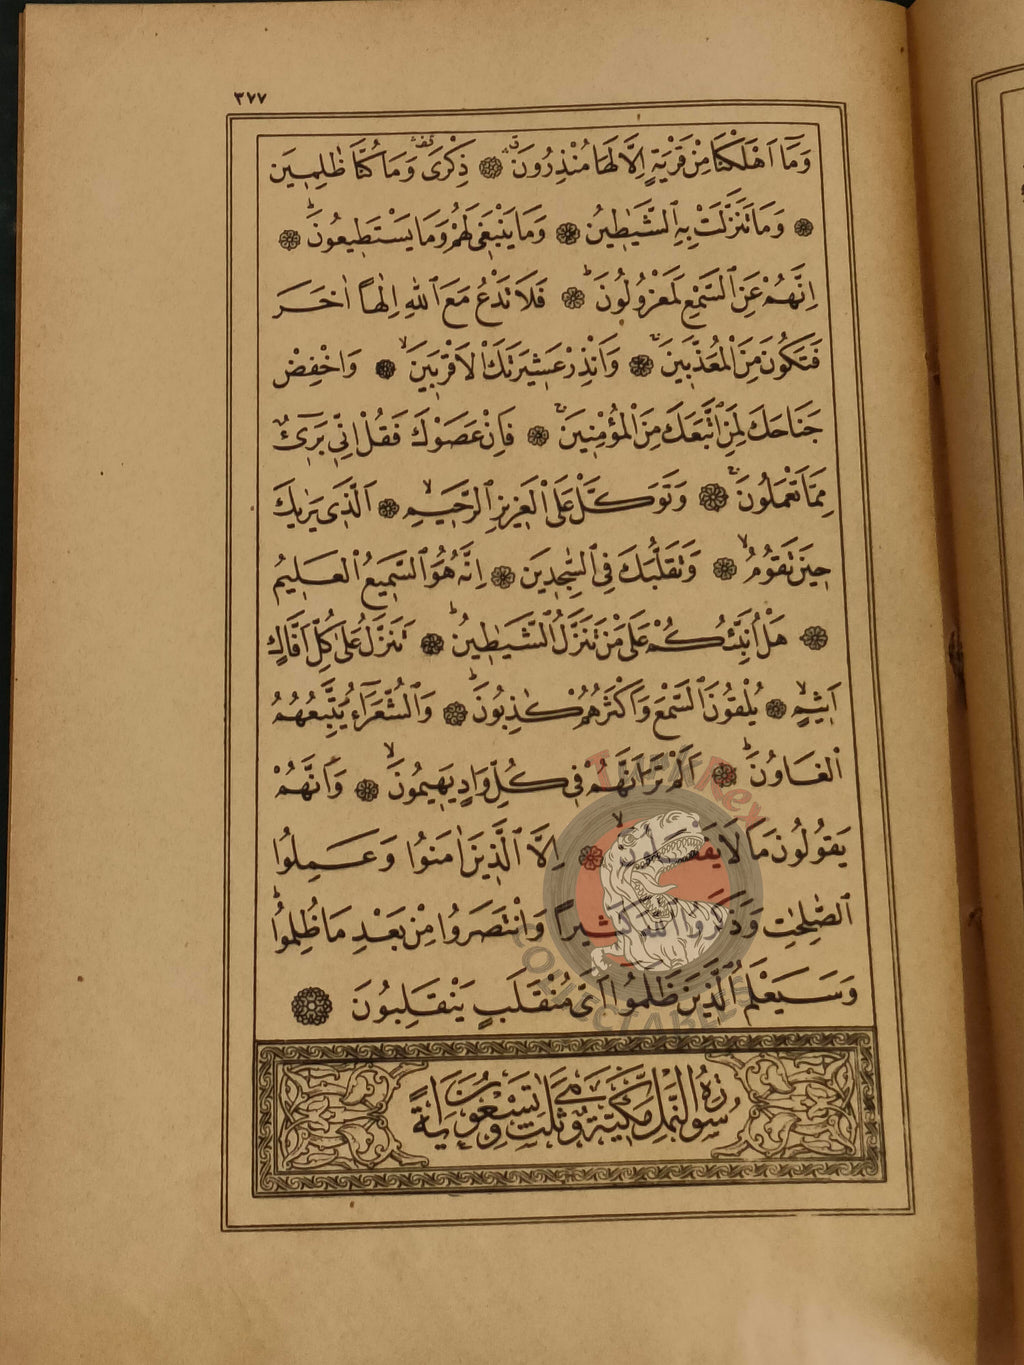 ٣٧٧
وَمَٓا اَهْلَكْنَا مِنْ قَرْيَةٍ اِلَّا لَهَا مُنْذِرُونَ ۞ ذِكْرٰى وَمَا كُنَّا ظَالِمٖينَ
۞ وَمَا تَنَزَّلَتْ بِهِ الشَّيَاطٖينُ ۞ وَمَا يَنْبَغٖى لَهُمْ وَمَا يَسْتَطٖيعُونَ ۞
اِنَّهُمْ عَنِ السَّمْعِ لَمَعْزُولُونَ ۞ فَلَا تَدْعُ مَعَ اللّٰهِ اِلٰهًا اٰخَرَ
فَتَكُونَ مِنَ الْمُعَذَّبٖينَ ۞ وَاَنْذِرْ عَشٖيرَتَكَ الْاَقْرَبٖينَ ۞ وَاخْفِضْ
جَنَاحَكَ لِمَنِ اتَّبَعَكَ مِنَ الْمُؤْمِنٖينَ ۞ فَاِنْ عَصَوْكَ فَقُلْ اِنّٖى بَرٖٓىءٌ
مِمَّا تَعْمَلُونَ ۞ وَتَوَكَّلْ عَلَى الْعَزٖيزِ الرَّحٖيمِ ۞ اَلَّذٖى يَرٰيكَ
حٖينَ تَقُومُ ۞ وَتَقَلُّبَكَ فِى السَّاجِدٖينَ ۞ اِنَّهُ هُوَ السَّمٖيعُ الْعَلٖيمُ
۞ هَلْ اُنَبِّئُكُمْ عَلٰى مَنْ تَنَزَّلُ الشَّيَاطٖينُ ۞ تَنَزَّلُ عَلٰى كُلِّ اَفَّاكٍ
اَثٖيمٍ ۞ يُلْقُونَ السَّمْعَ وَاَكْثَرُهُمْ كَاذِبُونَ ۞ وَالشُّعَرَٓاءُ يَتَّبِعُهُمُ
الْغَاوُنَ ۞ اَلَمْ تَرَ اَنَّهُمْ فٖى كُلِّ وَادٍ يَهٖيمُونَ ۞ وَاَنَّهُمْ
يَقُولُونَ مَا لَا يَفْعَلُونَ ۞ اِلَّا الَّذٖينَ اٰمَنُوا وَعَمِلُوا
الصَّالِحَاتِ وَذَكَرُوا اللّٰهَ كَثٖيرًا وَانْتَصَرُوا مِنْ بَعْدِ مَا ظُلِمُوا
وَسَيَعْلَمُ الَّذٖينَ ظَلَمُٓوا اَىَّ مُنْقَلَبٍ يَنْقَلِبُونَ ۞
سُورَةُ النَّمْلِ مَكِّيَّةٌ وَهِىَ ثَلٰثٌ وَتِسْعُونَ اٰيَةً
TrexRex
COLLECTABLES